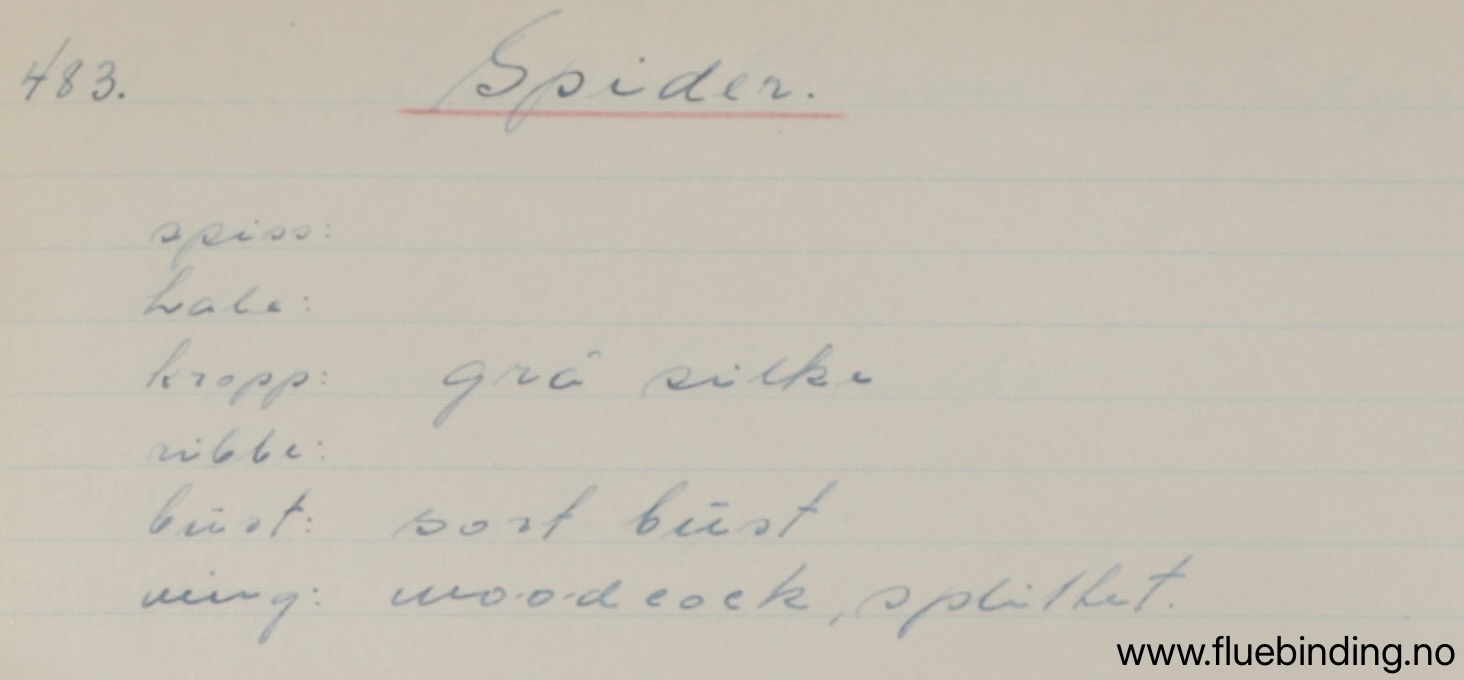 483. Spider.
spiss:
hale:
kropp: grå silke
ribbe:
büst: sort büst
ving: woodcock, splittet.
www.fluebinding.no